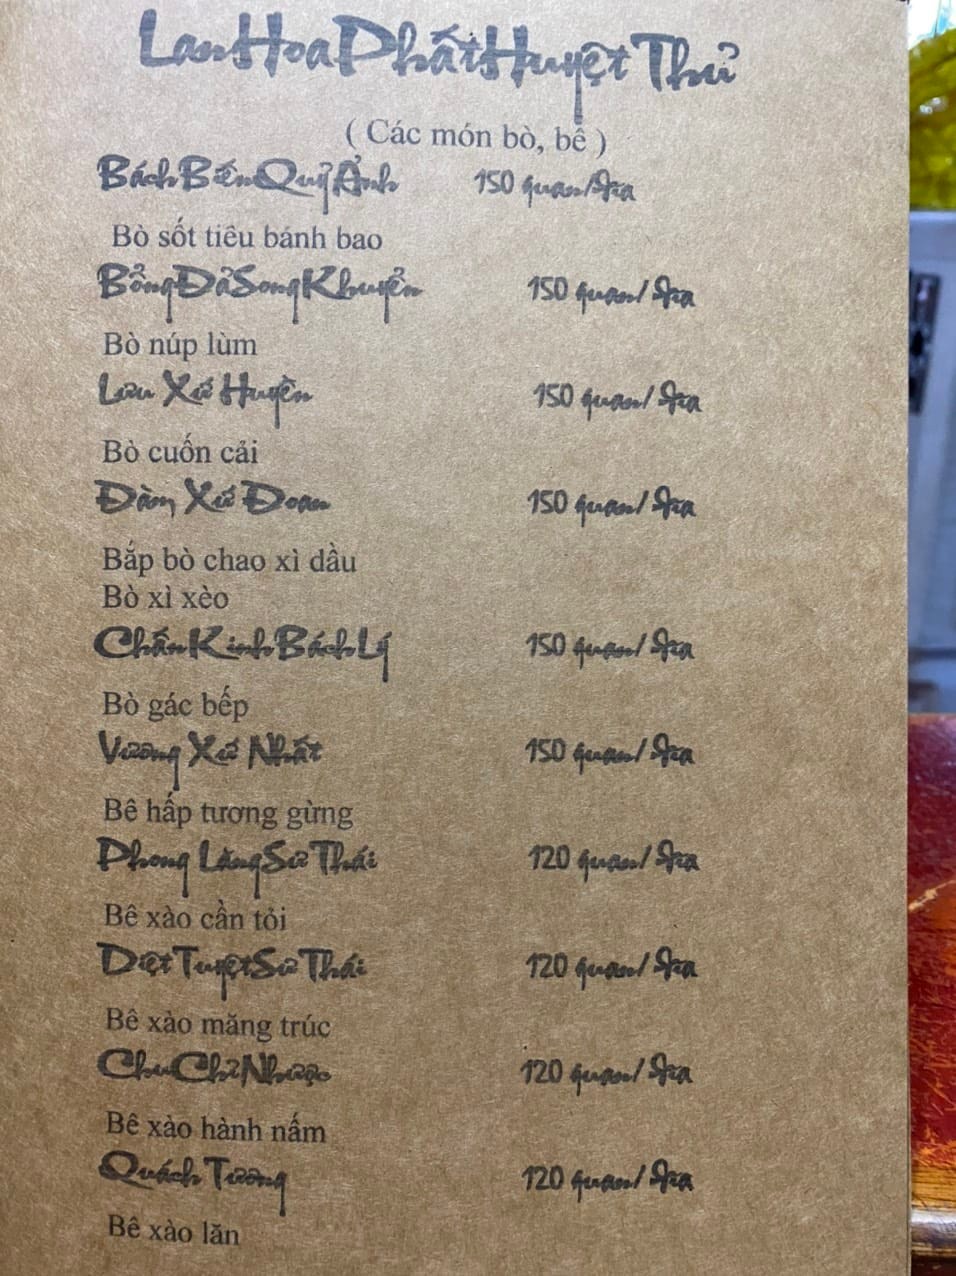 Lan Hoa Phất Huyệt Thủ
( Các món bò, bê )
Bách Biến Quỷ Ảnh 150 quan/đĩa
Bò sốt tiêu bánh bao
Bổng Đả Song Khuyển 150 quan/ đĩa
Bò núp lùm
Lưu Xứ Huyền 150 quan/ đĩa
Bò cuốn cải
Đàm Xứ Đoan 150 quan/ đĩa
Bắp bò chao xì dầu
Bò xì xèo
Chấn Kinh Bách Lý 150 quan/ đĩa
Bò gác bếp
Vương Xứ Nhất 150 quan/ đĩa
Bê hấp tương gừng
Phong Lăng Sư Thái 120 quan/ đĩa
Bê xào cần tỏi
Diệt Tuyệt Sư Thái 120 quan/ đĩa
Bê xào măng trúc
Chu Chỉ Nhược 120 quan/ đĩa
Bê xào hành nấm
Quách Tường 120 quan/ đĩa
Bê xào lăn